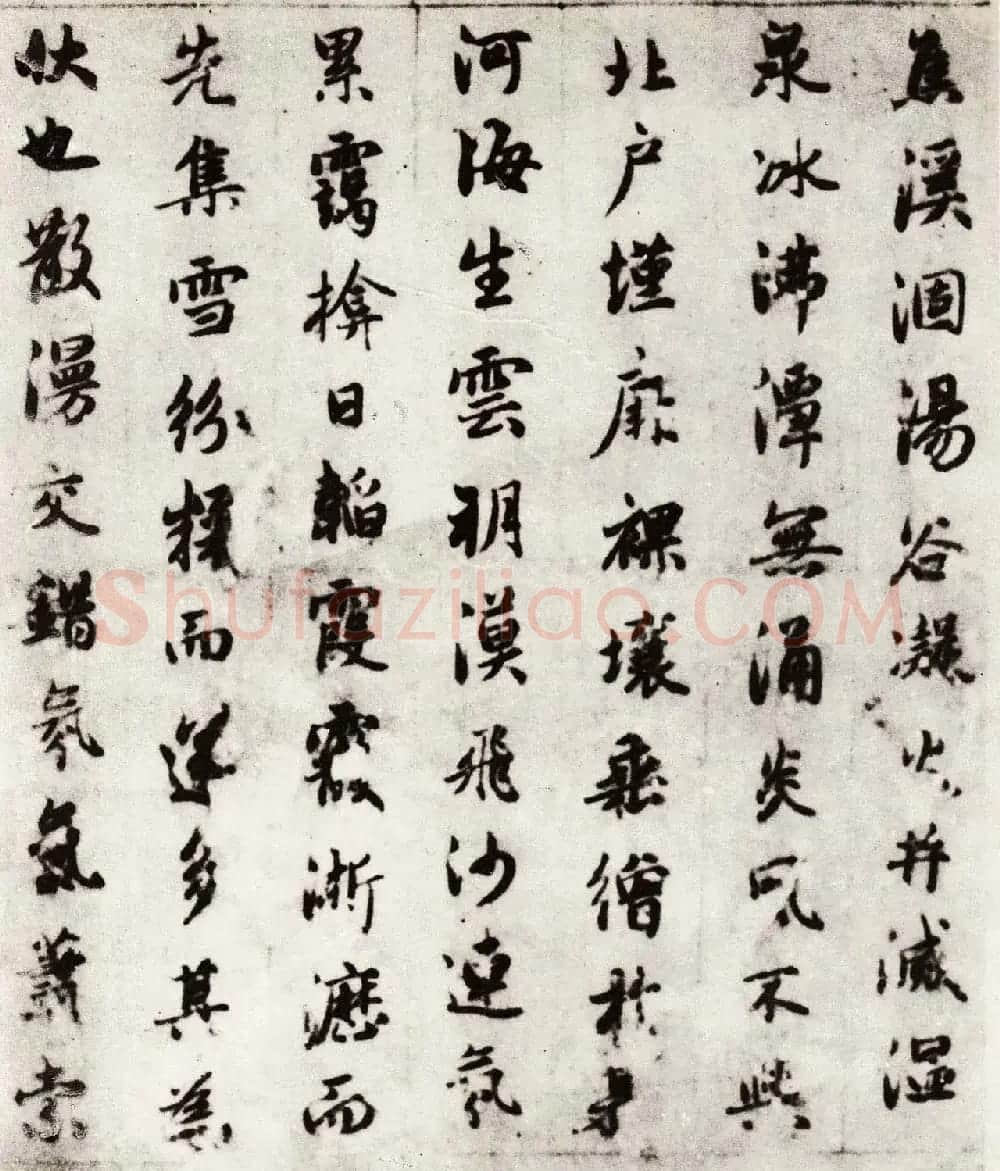 焦溪涸湯谷凝火井滅温
泉冰沸潭無涌炎風不興
北户墐扉裸壤垂繒於是
河海生雲朔漠飛沙連氛
累靄揜日韜霞霰淅瀝而
先集雪紛糅而遂多其為
狀也散漫交錯氛氳蕭索
Shufaziliao.COM